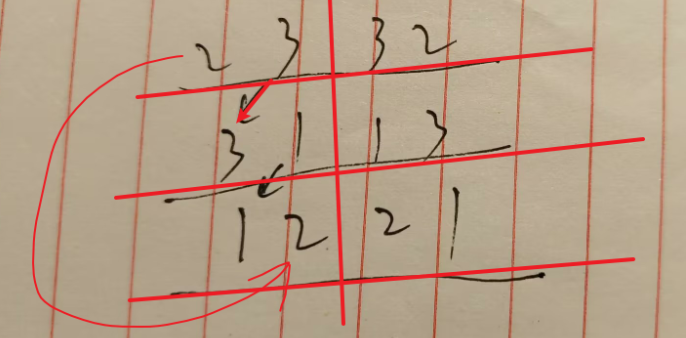 2 3 3 2
3 1 1 3
1 2 2 1